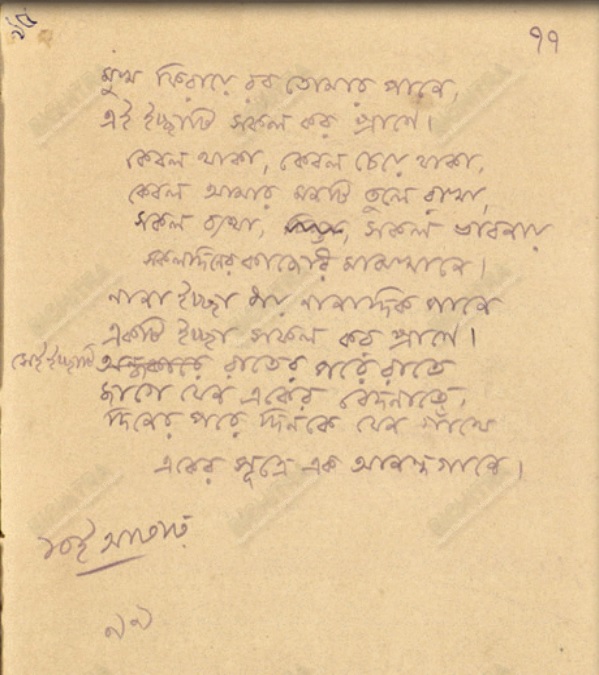 ৭৭
মুখ ফিরায়ে রব তোমার পানে,
এই ইচ্ছাটি সফল কর প্রাণে।
কেবল থাকা, কেবল চেয়ে থাকা,
কেবল আমার মনটি তুলে রাখা,
সকল ব্যথা, সকল ভাবনায়
সকলদিনের কাজেরি মাঝখানে।
নানা ইচ্ছা ধায় নানাদিক পানে
একটি ইচ্ছা সফল কর প্রাণে।
সেই ইচ্ছাটি অন্ধকারে রাতের পরে রাতে
জাগে যেন একের বেদনাতে,
দিনের পরে দিনকে যেন গাঁথে
একের সূত্রে এক আনন্দগানে।
আষাঢ়